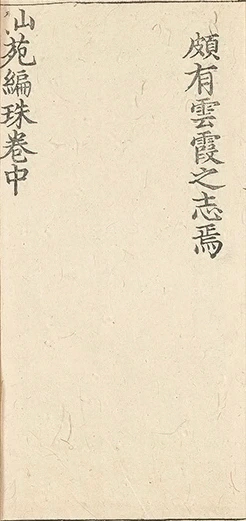 頗有雲霞之志焉
山苑編珠卷中